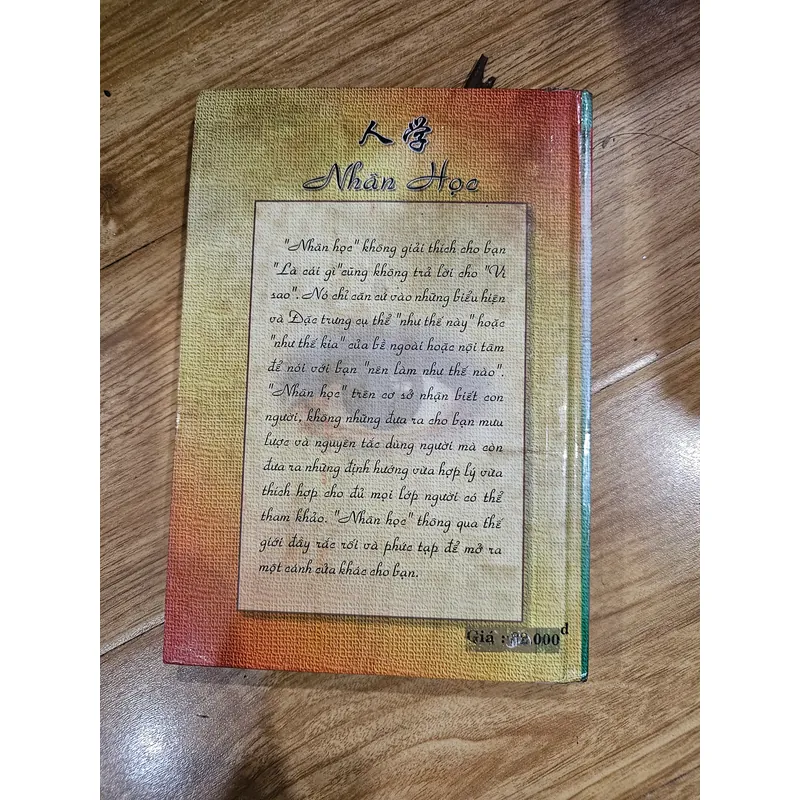 人学
Nhân Học
"Nhân học" không giải thích cho bạn
"Là cái gì"cũng không trả lời cho "Vì
sao". Nó chỉ căn cứ vào những biểu hiện
và Đặc trưng cụ thể "như thế này" hoặc
"như thế kia" của bề ngoài hoặc nội tâm
để nói với bạn "nên làm như thế nào".
"Nhân học" trên cơ sở nhận biết con
người, không những đưa ra cho bạn mưu
lược và nguyên tắc dùng người mà còn
đưa ra những định hướng vừa hợp lý vừa
thích hợp cho đủ mọi lớp người có thể
tham khảo. "Nhân học" thông qua thế
giới đầy rắc rối và phức tạp để mở ra
một cánh cửa khác cho bạn.
Giá :